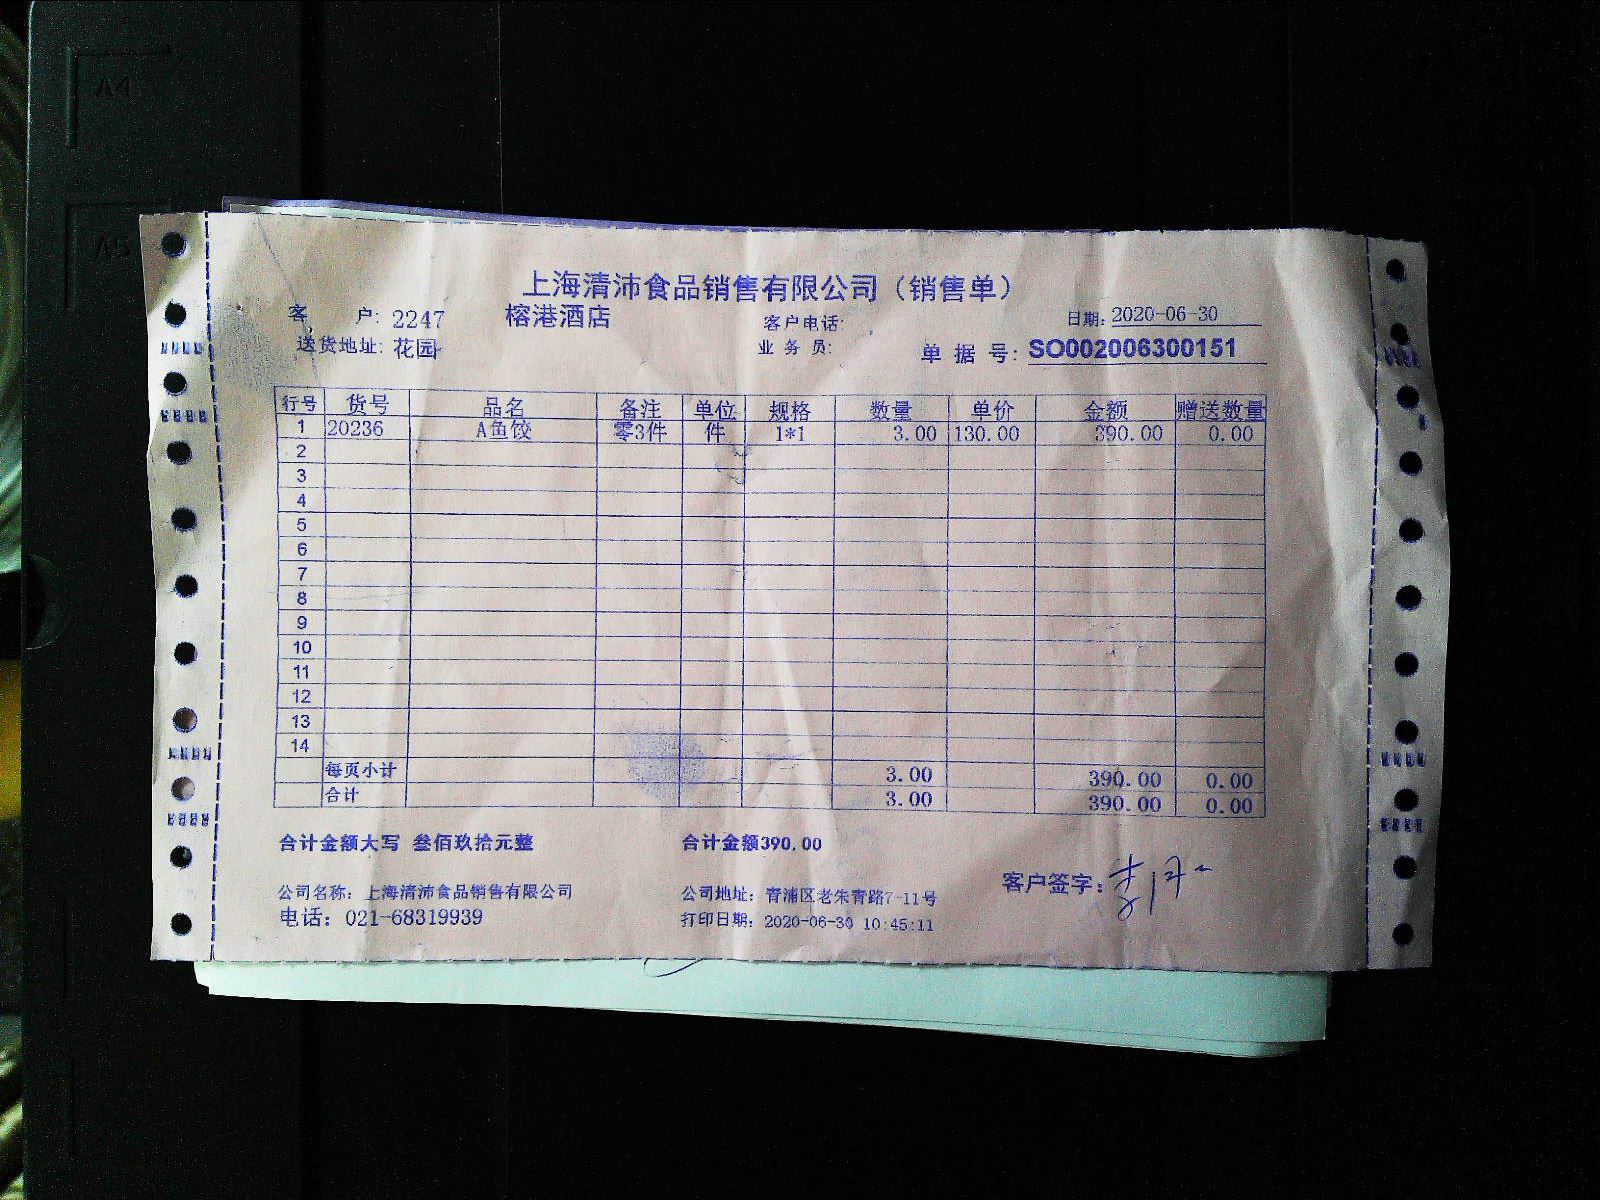 上海清沛食品销售有限公司（销售单）
客 户: 2247 榕港酒店 客户电话: 日期: 2020-06-30
送货地址: 花园 业务员: 单据号: SO002006300151
行号 货号 品名 备注 单位 规格 数量 单价 金额 赠送数量
1 20236 A鱼饺 零3件 件 1*1 3.00 130.00 390.00 0.00
2
3
4
5
6
7
8
9
10
11
12
13
14
每页小计 3.00 390.00 0.00
合计 3.00 390.00 0.00
合计金额大写 叁佰玖拾元整 合计金额390.00
公司名称: 上海清沛食品销售有限公司 公司地址: 青浦区老朱青路7-11号 客户签字:
电话: 021-68319939 打印日期: 2020-06-30 10:45:11
A4
A5